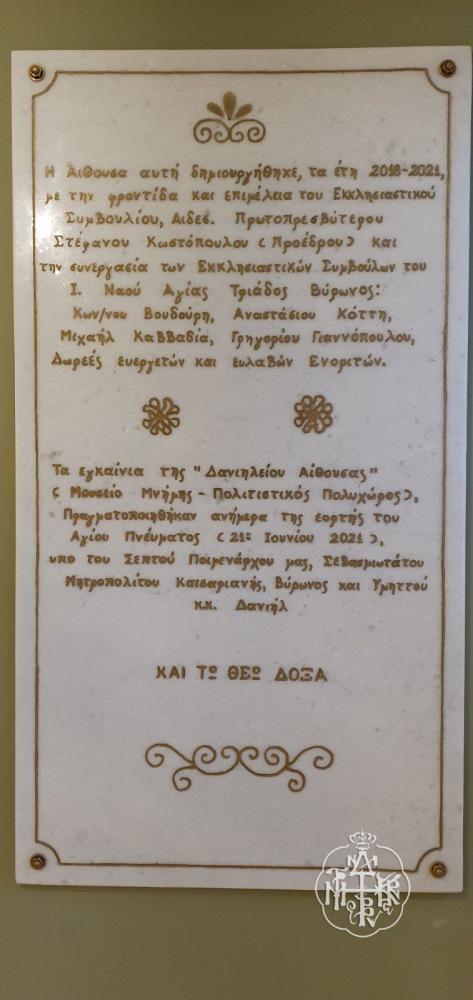 Η Αίθουσα αυτή δημιουργήθηκε, τα έτη 2018-2021,
με την φροντίδα και επιμέλεια του Εκκλησιαστικού
Συμβουλίου, Αιδεσ. Πρωτοπρεσβύτερου
Στέφανου Κωστόπουλου (Προέδρου) και
την συνεργασία των Εκκλησιαστικών Συμβούλων του
Ι. Ναού Αγίας Τριάδος Βύρωνος:
Κων/νου Βουδούρη, Αναστάσιου Κόττη,
Μιχαήλ Καββαδία, Γρηγορίου Γιαννόπουλου,
Δωρεές ευεργετών και ευλαβών Ενοριτών.
Τα εγκαίνια της "Δανιηλείου Αίθουσας"
(Μουσείο Μνήμης - Πολιτιστικός Πολυχώρος),
Πραγματοποιήθηκαν ανήμερα της εορτής του
Αγίου Πνεύματος (21: Ιουνίου 2021),
υπο του Σεπτού Ποιμενάρχου μας, Σεβασμιωτάτου
Μητροπολίτου Καισαριανής, Βύρωνος και Υμηττού
κ.κ. Δανιήλ
ΚΑΙ ΤΩ ΘΕΩ ΔΟΞΑ